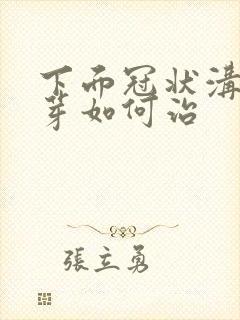 下而冠状溝
芽如何治
張立勇